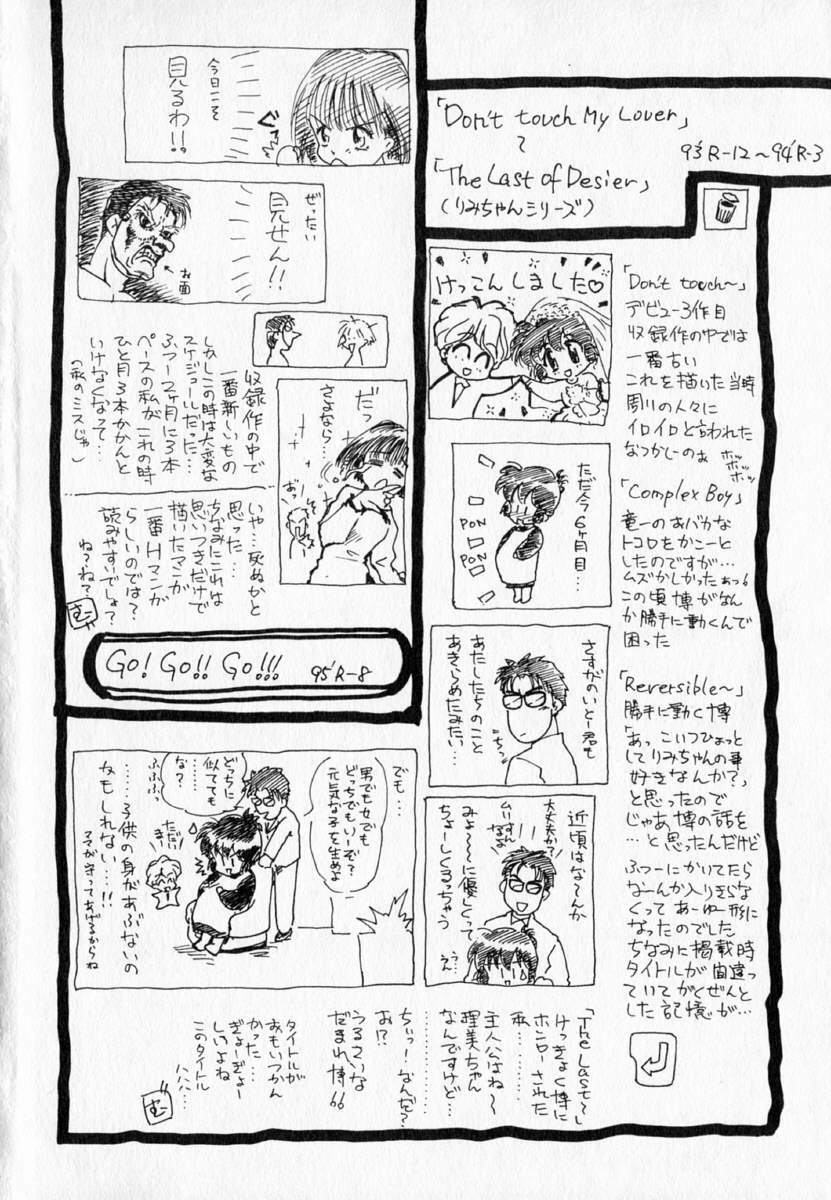 「Don't touch My Lover」
～
「The Last of Desier」
(りみちゃんシリーズ)
93'R-12～94'R-3
「Don't touch～」
デビュー3作目
収録作の中では
一番古い
これを描いた当時
周りの人々に
イロイロと言われた
なつかしーのぉ
ホッ
ホッ
ホッ
「Complex Boy」
竜一のおバカな
トコロをかこーと
したのですが…
ムズかしかったぁっ!
この頃博がなん
か勝手に動くんで
困った
「Reversible～」
勝手に動く博
「あっ こいつひょっと
してりみちゃんの事
好きなんか?」
と思ったので
じゃあ博の話を
…と思ったんだけど
ふつーにかいてたら
なーんか入りきらな
くって あーゆー形に
なったのでした
ちなみに掲載時
タイトルが間違っ
ていてがくぜんと
した記憶が…
けっこんしました♡
ただ今6ヶ月目…
PON
PON
さすがのいとー君も
あたしたちのこと
あきらめたみたい…
近頃はな～んか
みょ～～に優しくって
ちょーしくるっちゃう
大丈夫か?
ムリすん
なよ
う…
うん
でも…
男でも女でも
どっちでもいーぞ?
元気な子を生めよ
どっちに
似てても
な?
ふふふっ
ただい
まー
……子供の身があぶないの
かもしれない…!!
ママが守ってあげるからね
「The Last～」
けっきょく博に
ホンローされた
私……
主人公はね～
理美ちゃん
なんですけど…
………
ちぃっーなんだ?
お!?
うるさいな
だまれ博!!
タイトルが
おもいつかん
かった…
ぎょーぎょー
しいよね
このタイトル
ハハハ…
む
今日こそ
見るわ!!
ぐっ
ぜったい
見せん!!
お面
だっ
さよなら…
おっ
収録作の中で
一番新しいもの
しかしこの時は大変な
スケジュールだった…
ふつー2ヶ月に3本
ペースの私がこれの時
ひと月3本かかんと
いけなくなって…
(私のミスじゃ)
いや…死ぬかと
思った…
ちなみにこれは
思いつきだけで
描いたマンガ
一番Hマンガ
らしいのでは?
読みやすいでしょ?
ね?ね?
む
Go! Go!! Go!!! 95'R-8